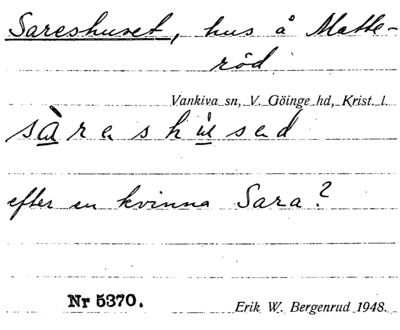 Sareshuset, hus å Matte-
röd.
Vankiva sn, V. Göinge hd, Krist. l.
sàreshùsed
efter en kvinna Sara?
Nr 5370.
Erik W. Bergenrud 1948.